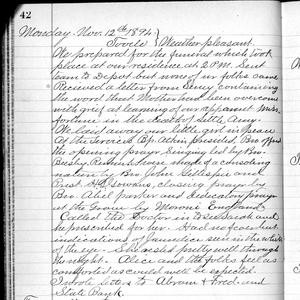 42
Monday Nov. 12th 1894.
Tooele } Weather pleasant.
We prepared for the funeral which took
place at our residence at 2 P.M. Sent
team to Depot but none of our folks came
Received a letter from containing
the word that Mother had been overcome
with grief at learning of our apparent mis-
fortune in the death of little Amy.
We laid away our little girl in peace
At the Services Bp. Atkin presided Bro
the opening prayer. Singing led by Bro.
made of a consoling
nation by Bro. John Gillespie and
Prest. H.S. Gowans, closing prayer by
Bro. Abiel Parker and dedicatory prayer
at the Grave by Morris England
Called the Doctor in to see Sarah and
he prescribed for her. Had no fever but
indications of jaundice seen in the white
of the eye. She rested pretty well through
the night. Alice and the folks feel as
comfortable as could well be expected.
I wrote letters to Abram & Fred. and
State Bank.